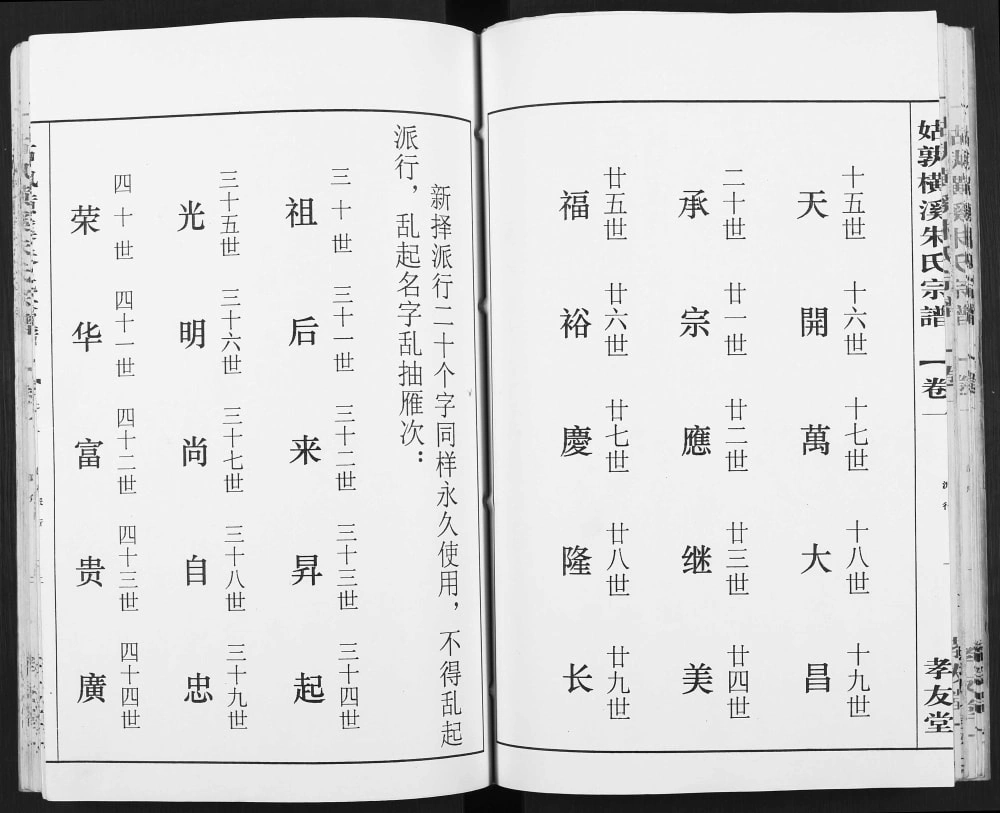 姑孰橫溪朱氏宗譜
卷一
派行
孝友堂
十五世 十六世 十七世 十八世 十九世
天 開 萬 大 昌
二十世 廿一世 廿二世 廿三世 廿四世
承 宗 應 继 美
廿五世 廿六世 廿七世 廿八世 廿九世
福 裕 慶 隆 长
新择派行二十个字同样永久使用，不得乱起
派行，乱起名字乱抽雁次：
三十世 三十一世 三十二世 三十三世 三十四世
祖 后 来 昇 起
三十五世 三十六世 三十七世 三十八世 三十九世
光 明 尚 自 忠
四十世 四十一世 四十二世 四十三世 四十四世
荣 华 富 贵 廣